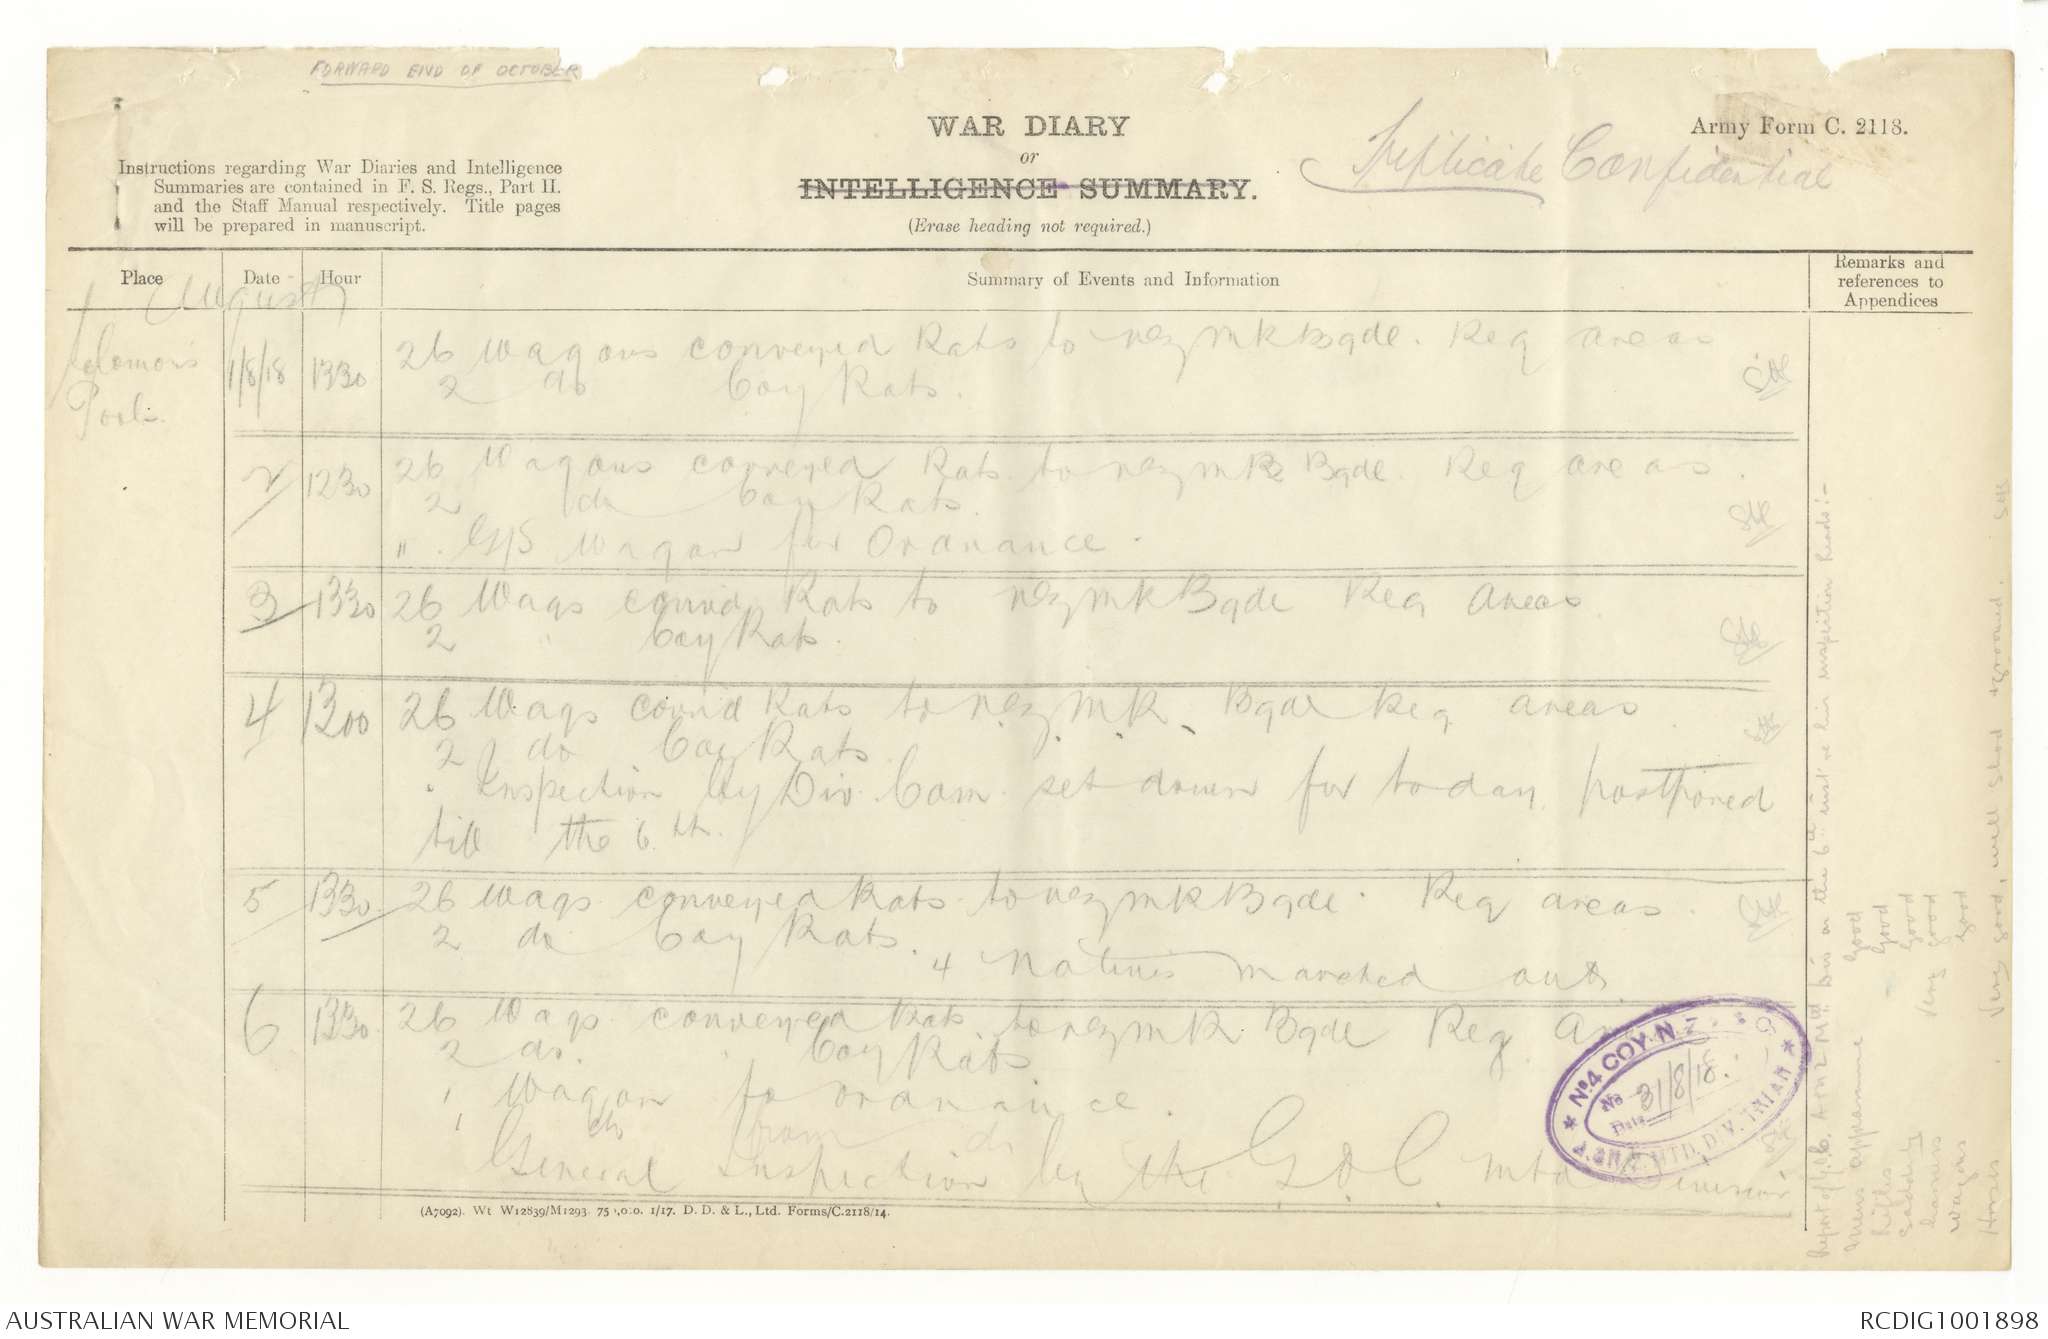 FORWARD END OF OCTOBER
WAR DIARY
or
INTELLIGENCE SUMMARY.
(Erase heading not required.)
Instructions regarding War Diaries and Intelligence
Summaries are contained in F. S. Regs., Part II.
and the Staff Manual respectively. Title pages
will be prepared in manuscript.
Triplicate Confidential
Army Form C. 2118.
Place
Date
Hour
Summary of Events and Information
Remarks and
references to
Appendices
August
Solomons
Pools
1/8/18 1330 26 Wagons conveyed Rats to NZMR Bgde. Reg areas
2 do Coy Rats.
2 1230 26 Wagons conveyed Rats to NZMR Bgde. Reg areas.
2 do Coy Rats.
" G/S Wagon for Ordnance.
3 1330 26 Wags convd Rats to NZMR Bgde Reg Areas
2 " Coy Rats.
4 1300 26 Wags convd Rats to N.Z.M.R. Bgde Reg areas
2 do Coy Rats
Inspection by Div. Com. set down for today postponed
till the 6th.
5 1330 26 Wags conveyed Rats to NZMR Bgde. Reg areas.
2 do Coy Rats.
4 Natives marched out
6 1330 26 Wags conveyed Rats to NZMR Bgde Reg
2 do. Coy Rats
1 Wagon to ordnance.
1 do from do
General Inspection by the G.O.C. Mtd Division
No. 4 COY. N.Z.
No
Date 31/8/18.
MTD. DIV. TRIAN
Report of G.O.C. A.&N.Z. Mtd Div on the 6th inst re his inspection heads:-
Mens appearance Good
Rifles Good
Saddlery Good
harness Very good
Wagons Good
Horses Very good, well shod & groomed.
(A7092). Wt W12839/M1293. 75 ,0:0. 1/17. D. D. & L., Ltd. Forms/C.2118/14.
AUSTRALIAN WAR MEMORIAL
RCDIG1001898